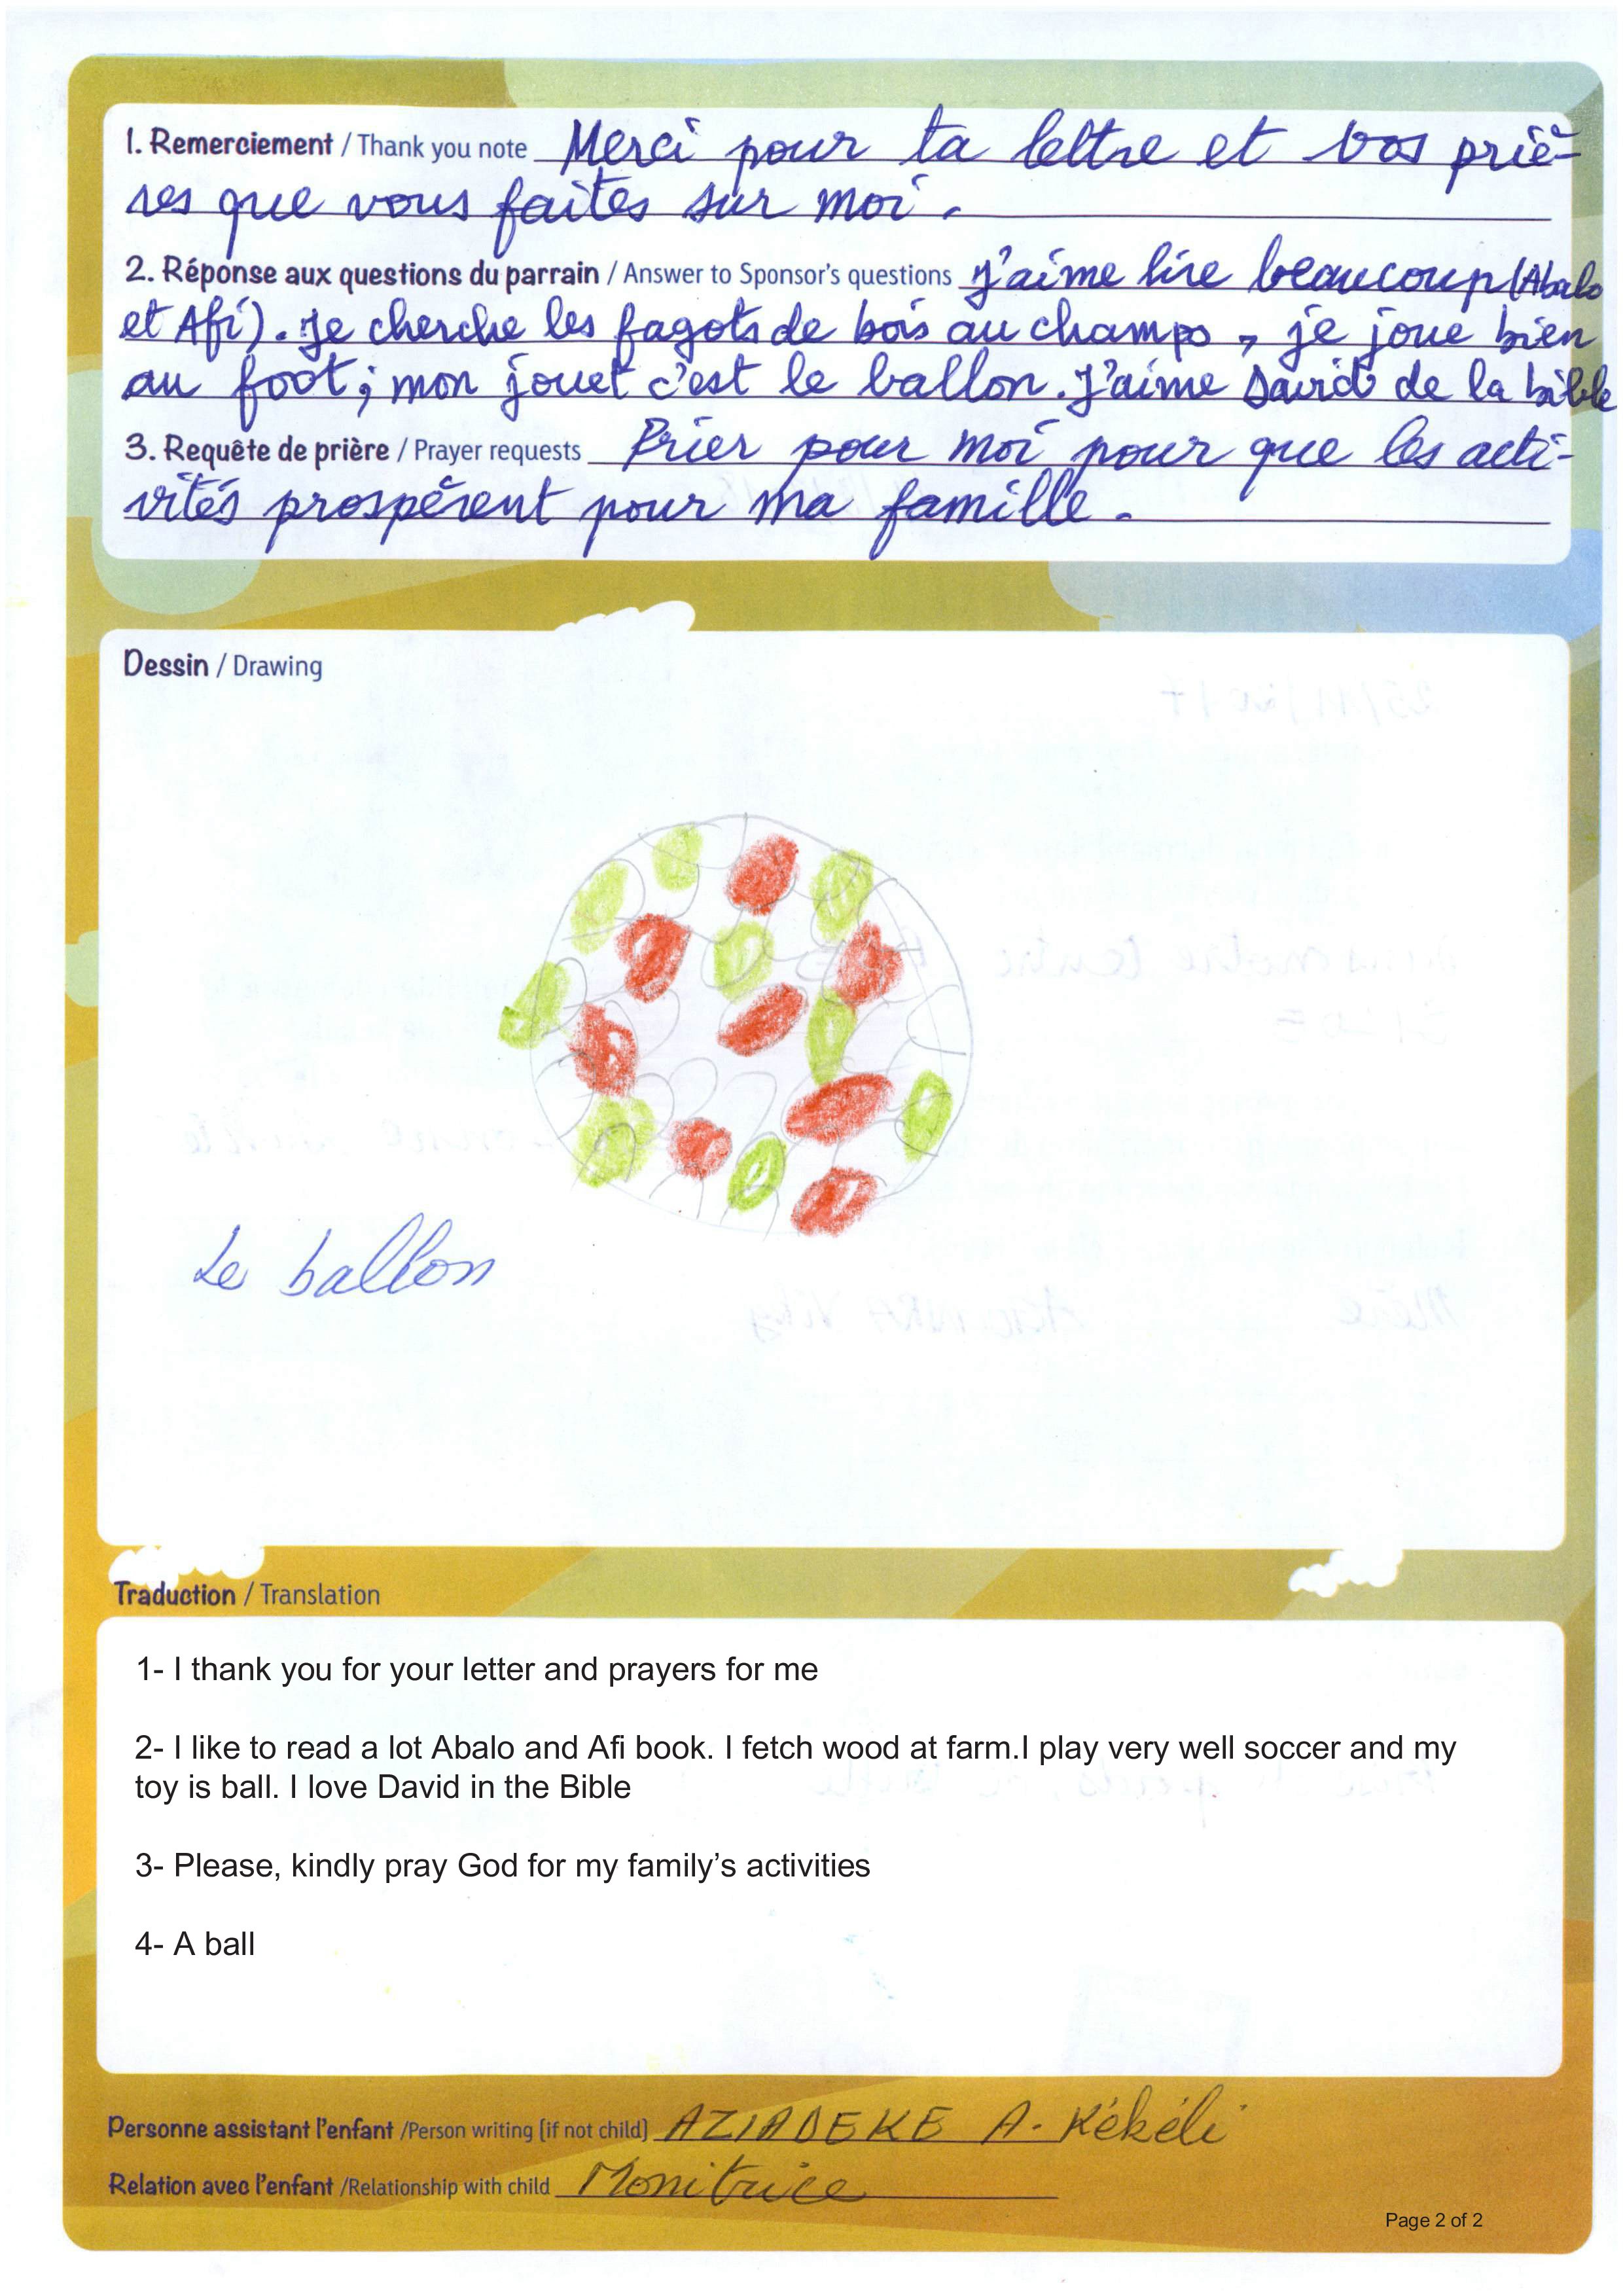 1. Remerciement / Thank you note Merci pour ta lettre et vos priè-
res que vous faites sur moi.
2. Réponse aux questions du parrain / Answer to Sponsor's questions J'aime lire beaucoup (Abalo
et Afi). Je cherche les fagots de bois au champs, je joue bien
au foot; mon jouet c'est le ballon. J'aime David de la bible
3. Requête de prière / Prayer requests Prier pour moi pour que les acti-
vités prospèrent pour ma famille.
Dessin / Drawing
Le ballon
Traduction / Translation
1- I thank you for your letter and prayers for me
2- I like to read a lot Abalo and Afi book. I fetch wood at farm.I play very well soccer and my
toy is ball. I love David in the Bible
3- Please, kindly pray God for my family’s activities
4- A ball
Personne assistant l'enfant /Person writing (if not child) AZIADEKE A. Kékéli
Relation avec l'enfant /Relationship with child Monitrice
Page 2 of 2